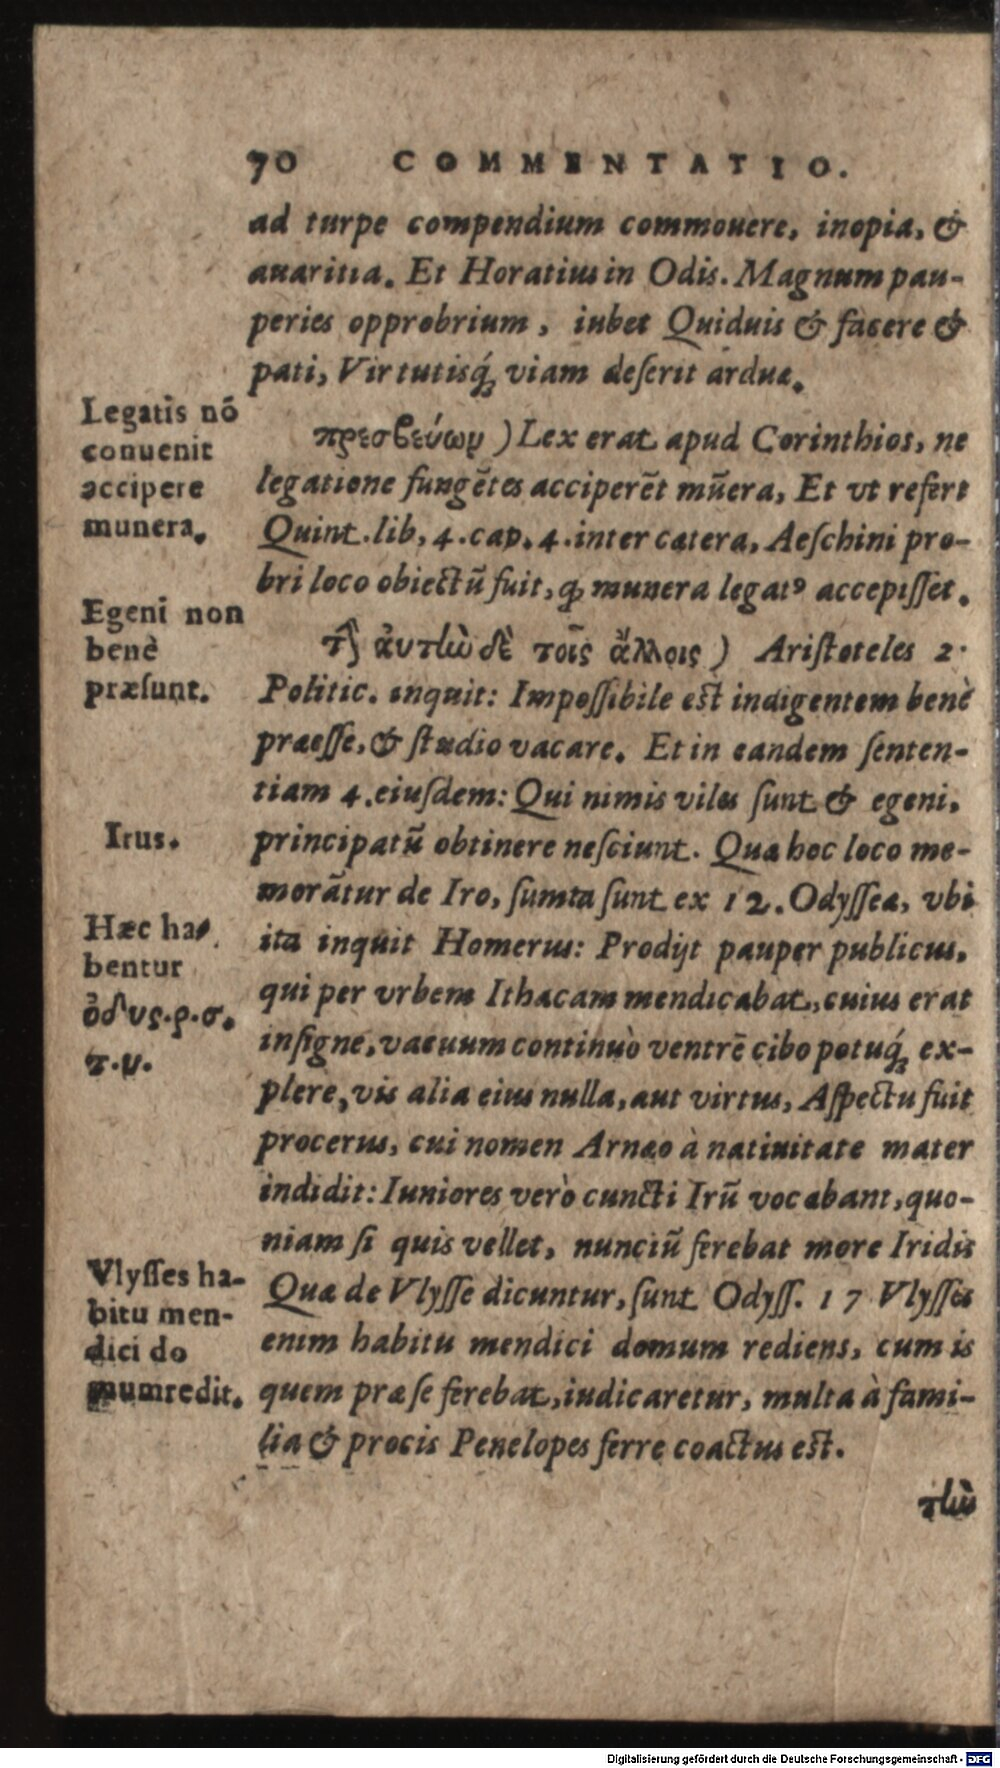 70 COMMENTATIO.
ad turpe compendium commouere, inopia, &
auaritia. Et Horatius in Odis. Magnum pau-
peries opprobrium, iubet Quiduis & facere &
pati, Virtutisq́; viam deserit arduæ.
Legatis nō
conuenit
accipere
munera.
πρεσβεύων ) Lex erat apud Corinthios, ne
legatione fungẽtes acciperẽt mũera, Et vt refert
Quint. lib, 4. cap. 4. inter cætera, Aeschini pro-
bri loco obiectũ fuit, ꝙ munera legatꝰ accepisset.
Egeni non
benè
præsunt.
τὴν ἀυτὼ δὲ τοῖς ἄλλοις ) Aristoteles 2.
Politic. inquit: Impossibile est indigentem benè
præesse, & studio vacare. Et in eandem senten-
tiam 4. eiusdem: Qui nimis viles sunt & egeni,
principatũ obtinere nesciunt. Quæ hoc loco me-
morãtur de Iro, sumta sunt ex 12. Odysseæ, vbi
ita inquit Homerus: Prodijt pauper publicus,
qui per vrbem Ithacam mendicabat, cuius erat
insigne, vacuum continuò ventrẽ cibo potuq́; ex-
plere, vis alia eius nulla, aut virtus, Aspectu fuit
procerus, cui nomen Arnæo à natiuitate mater
indidit: Iuniores verò cuncti Irũ vocabant, quo-
niam si quis vellet, nunciũ ferebat more Iridis
Irus.
Hæc ha-
bentur
ὀδυς. ρ. σ.
τ. υ.
Vlysses ha-
bitu men-
dici do
mumredit.
Quæ de Vlysse dicuntur, sunt Odyss. 17 Vlysses
enim habitu mendici domum rediens, cum is
quem præ se ferebat, iudicaretur, multa à fami-
lia & procis Penelopes ferre coactus est.
τὼ
Digitalisierung gefördert durch die Deutsche Forschungsgemeinschaft - DFG